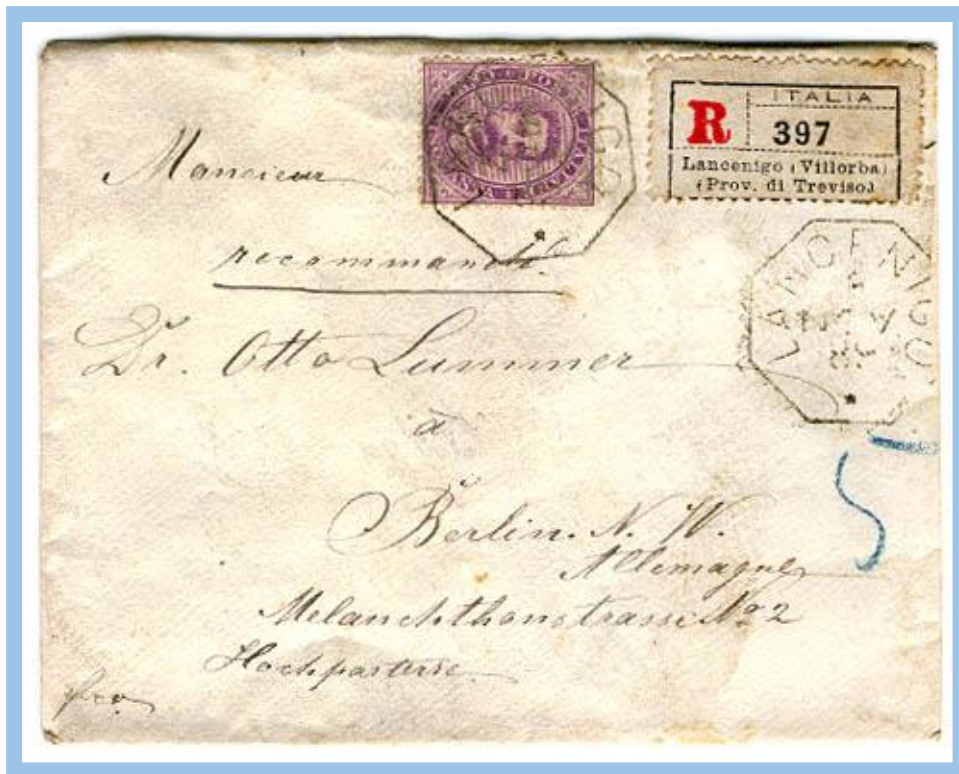 R
ITALIA
397
Lancenigo (Villorba)
(Prov. di Treviso)
Monsieur
recommandé.
LANCENIGO
Dr. Otto Lummer
à
5
Berlin. N. W.
Allemagne
Melanchthonstrasse No 2
Hochparterre
fco